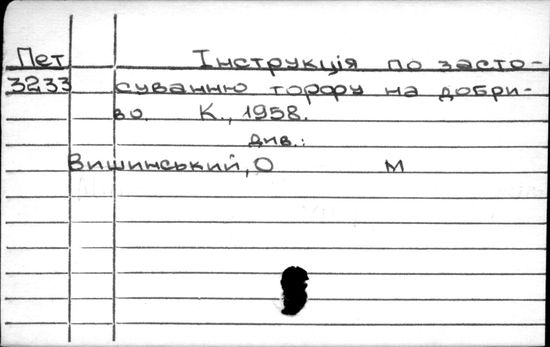 Пет Інструкція по засто-
3233 суванню торфу на добри-
во. К., 1958.
див.:
Вишинський, О М